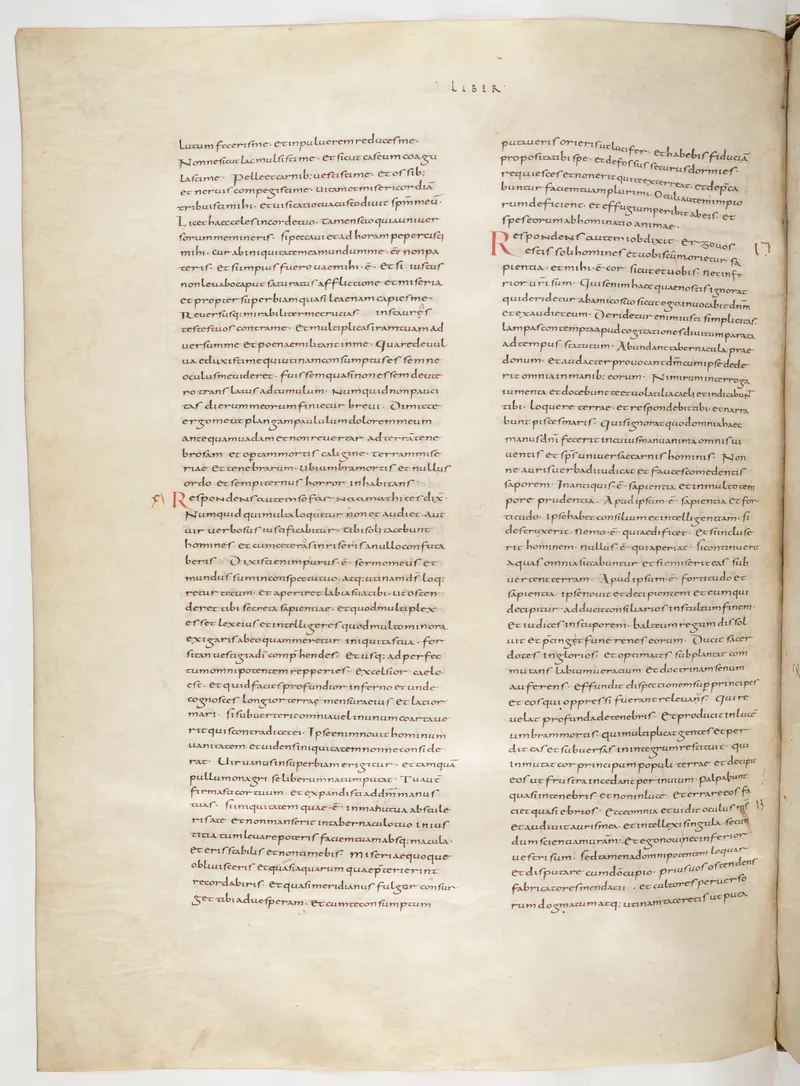 LIBER
lutum feceris me· et in puluerem reduces me·
Nonne sicut lac mulsisti me· et sicut caseum coagu
lasti me· Pelle et carnib; uestisti me· et ossib;
et neruis compegisti me· uitam et misericordiā
tribuisti mihi· et uisitatio tua custodiuit spm̄ meū·
Licet haec celes in corde tuo· tamen scio quia uniuer
sorum memineris· si peccaui et ad horam pepercisti
mihi· cur ab iniquitate mea mundum me· ee non pa
teris· et si impius fuero uae mihi· ē· et si iustus
non leuabo caput saturatus afflictione et miseria
et propter superbiam quasi leaenam capies me·
Reuersusq; mirabiliter me crucias· instaures
testes tuos contra me· et multiplicas iram tuam ad
uersum me et poenae militant in me· Quare de uul
ua eduxisti me qui utinam consumptus essem ne
oculus me uideret· fuissem quasi non essem de ute
ro translatus ad tumulum· Numquid non pauci
tas dierum meorum finietur breui· Dimitte
ergo me ut plangam paululum dolorem meum
antequam uadam et non reuertar ad terrā tene
brosam· et opertam mortis caligine· terram mise
riae et tenebrarum· ubi umbra mortis et nullus
ordo· et sempiternus horror inhabitans·
XI Respondens autem sofar naamathites dix·
Numquid qui multa loquitur non et audiet· aut
uir uerbosus iustificabitur· tibi soli tacebunt
homines· et cum ceteros inriseris a nullo confuta
beris· Dixisti enim purus· ē· sermo meus et
mundus sum in conspectu tuo· atq; utinam ds̄ loq;
retur tecum· et aperiret labia sua tibi· ut osten
deret tibi secreta sapientiae· et quod multiplex
esset lex eius et intellegeres quod multo minora
exigaris ab eo quam meretur iniquitas tua· for
sitan uestigia di comp̄hendes· et usq; ad perfec
tum omnipotentem repperies· excelsior caelo
est· et quid facies profundior inferno et unde
cognosces longior terrae mensura eius et latior
mari· si subuerterit omnia uel in unum coartaue
rit quis contradicet ei· Ipse enim nouit hominum
uanitatem· et uidens iniquitatem nonne conside
rat· Uir uanus in superbiam erigitur· et tamquā
pullum onagri se liberum natum putat· Tu autē
firmasti cor tuum· et expandisti ad dm̄ manus
tuas· si iniquitatem quae· ē· in manu tua abstule
ris a te· et non manserit in tabernaculo tuo inius
titia tum leuare poteris faciem tuam absq; macula·
et eris stabilis et non timebis· Miseriae quoque
obliuisceris et quasi aquarum quae p̄terierint
recordaberis· et quasi meridianus fulgor consur
get tibi ad uesperam· et cum te consumptum
putaueris orieris ut lucifer· et habebis fiduciā
proposita tibi spe· et defossus securus dormies·
requiesces et non erit qui te exterreat· et dep̄ca
buntur faciem tuam plurimi· Oculi autem impio
rum deficient· et effugium peribit ab eis· et
spes eorum abhominatio animae·
Respondens autem iob dixit· ergo uos
estis soli homines et uobiscum morietur sa
pientia· et mihi· ē· cor sicut et uobis· nec infe
rior uri sum· Quis enim haec quae nostis ignorat
qui deridetur ab amico suo sicut ego inuocabit dnm̄
et exaudiet eum· Deridetur enim iusti simplicitas
lampas contempta apud cogitationes diuitum parata
ad tempus statutum· Abundant tabernacula prae
donum· et audacter prouocant dm̄ cum ipse dede
rit omnia in manib; eorum· Nimirum interroga
iumenta et docebunt te et uolatilia caeli et indicabunt
tibi· loquere terrae et respondebit tibi· et narra
bunt pisces maris· Quis ignorat quod omnia haec
manus dn̄i fecerit in cuius manu anima omnis ui
uentis et sps̄ uniuersae carnis hominis· Non
ne auris uerba diiudicat et fauces comedentis
saporem· In antiquis· ē· sapientia et in multo tem
pore prudentia· Apud ipsum· ē· sapientia et for
titudo· ipse habet consilium et intellegentiam· si
destruxerit· nemo· ē· qui aedificet· et si incluse
rit hominem· nullus· ē· qui aperiat· si continuerit
aquas omnia siccabuntur et si emiserit eas sub
uertent terram· Apud ipsum· ē· fortitudo et
sapientia· ipse nouit et decipientem et eum qui
decipitur· adducit consiliarios in stultum finem·
et iudices in stuporem· balteum regum dissol
uit et p̄cinget fune renes eorum· Ducit sacer
dotes inglorios· et optimates subplantat com
mutans labium ueracium et doctrinam senum
auferens· effundit dispectionem sup̄ principes
et eos qui oppressi fuerant releuans· Qui re
uelat profunda de tenebris· et producit in lucē
umbram mortis· qui multiplicat gentes et per
dit eas et subuersas in integrum restituit· qui
inmutat cor principum populi terrae et decipit
eos ut frustra incedant per inuium· palpabunt
quasi in tenebris et non in luce· et errare eos fa
ciet quasi ebrios· et ecce omnia et uidit oculus ms
et audiuit auris mea· et intellexi singula· secun
dum scientiam uram· et ego noui nec inferior
uestri sum· sed tamen ad omnipotentem loquar
et disputare cum do cupio· prius uos ostendens
fabricatores mendacii· et cultores peruerso
rum dogmatum atq; utinam taceretis ut puta